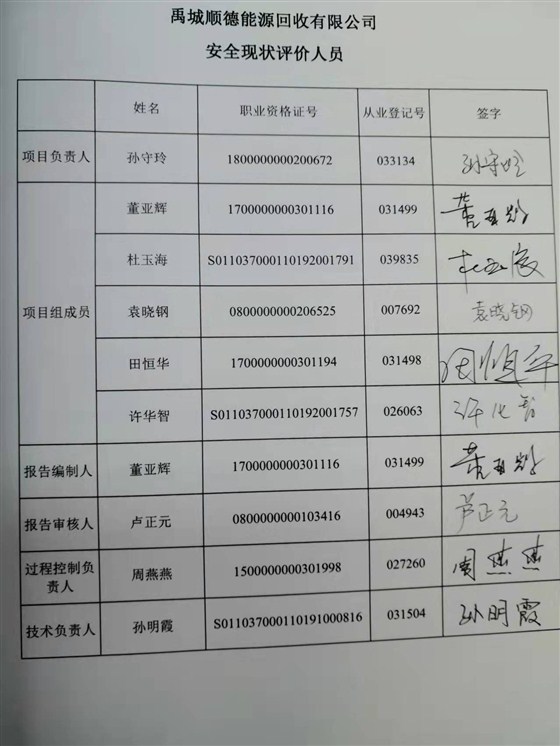 禹城顺德能源回收有限公司
安全现状评价人员
姓名 职业资格证号 从业登记号 签字
项目负责人 孙守玲 1800000000200672 033134 孙守玲
项目组成员
董亚辉 1700000000301116 031499 董亚辉
杜玉海 S011037000110192001791 039835 杜玉海
袁晓钢 0800000000206525 007692 袁晓钢
田恒华 1700000000301194 031498 田恒华
许华智 S011037000110192001757 026063 许华智
报告编制人 董亚辉 1700000000301116 031499 董亚辉
报告审核人 卢正元 0800000000103416 004943 芦正元
过程控制负
责人
周燕燕 1500000000301998 027260 周燕燕
技术负责人 孙明霞 S011037000110191000816 031504 孙明霞